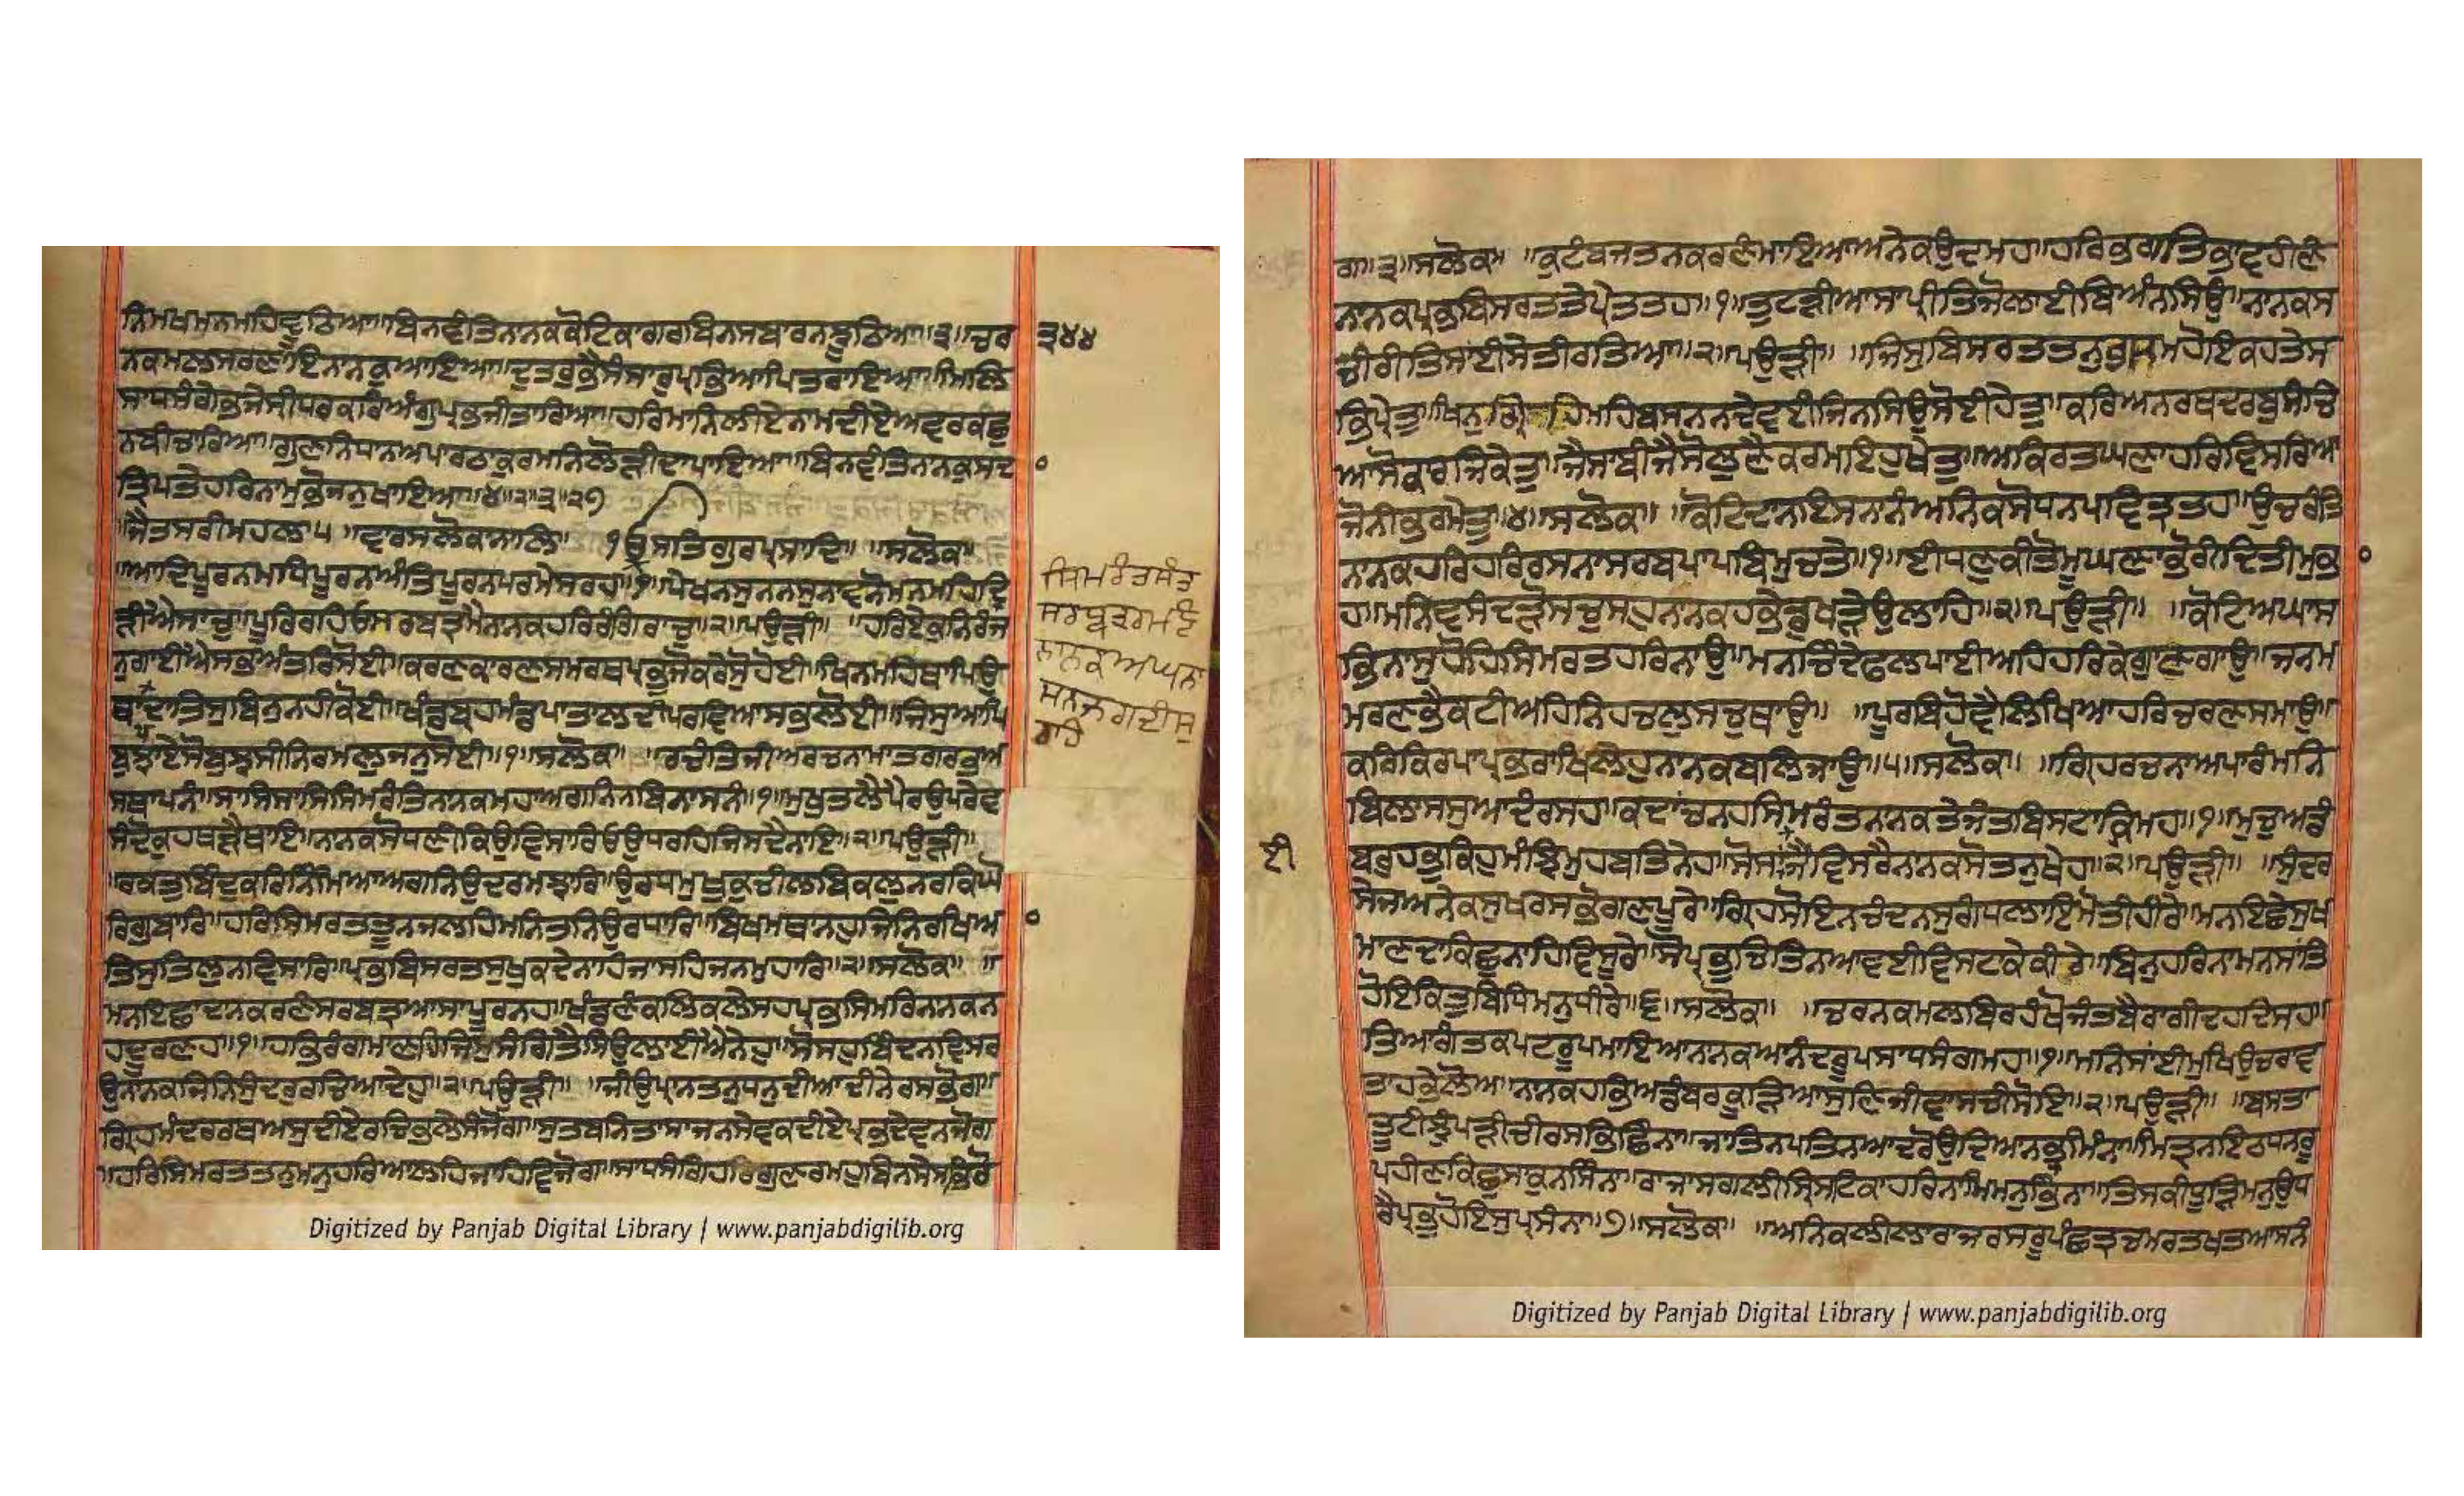 ਨਿਮਖਮਨਮਹਿਵੂਠਿਆ॥ਬਿਨਵੰਤਿਨਾਨਕਕੋਟਿਕਾਗਰਬਿਨਸਬਾਰਨਝੂਠਿਆ॥੩॥ਚਰ
੩੪੪
ਨਕਮਲਸਰਣਾਇਨਾਨਕੁਆਇਆ॥ਦੁਤਰੁਭੈਸੰਸਾਰੁਪ੍ਰਭਿਆਪਿਤਰਾਇਆ॥ਮਿਲਿ
ਸਾਧਸੰਗੇਭਜੇਸ੍ਰੀਧਰਕਰਿਅੰਗੁਪ੍ਰਭਜੀਤਾਰਿਆ॥ਹਰਿਮਾਨਿਲੀਏਨਾਮਦੀਏਅਵਰਕਛੁ
ਨਬੀਚਾਰਿਆ॥ਗੁਣਨਿਧਾਨਅਪਾਰਠਾਕੁਰਮਨਿਲੋੜੀਦਾਪਾਇਆ॥ਬਿਨਵੰਤਿਨਾਨਕੁਸਦ
ਤ੍ਰਿਪਤੇਹਰਿਨਾਮੁਭੋਜਨੁਖਾਇਆ॥੪॥੨॥੩॥੨੭
॥ਜੈਤਸਰੀਮਹਲਾ੫ ॥ਵਾਰਸਲੋਕਾਨਾਲਿ॥ ੧ੳਸਤਿਗੁਰਪ੍ਰਸਾਦਿ॥ ॥ਸਲੋਕ॥
॥ਆਦਿਪੂਰਨਮਧਿਪੂਰਨਅੰਤਿਪੂਰਨਪਰਮੇਸਰਹ॥
ੜੀਐਸਾਚੁ॥ਪੂਰਿਰਹਿਓਸਰਬਤ੍ਰਮੈਨਾਨਕਹਰਿਰੰਗਿਰਾਚੁ॥੨॥ਪਉੜੀ॥ ਹਰਿਏਕੁਨਿਰੰਜ
ਨੁਗਾਈਐਸਭਅੰਤਰਿਸੋਈ॥ਕਰਣਕਾਰਣਸਮਰਥਪ੍ਰਭੁਜੋਕਰੇਸੁਹੋਈ॥ਖਿਨਮਹਿਥਾਪਿਉ
ਥਾਪਦਾਤਿਸੁਬਿਨੁਨਹੀਕੋਈ॥ਖੰਡਬ੍ਰਹਮੰਡਪਾਤਾਲਦੀਪਰਵਿਆਸਭਲੋਈ॥ਜਿਸੁਆਪਿ
ਬੁਝਾਏਸੋਬੁਝਸੀਨਿਰਮਲੁਜਨੁਸੋਈ॥੧॥ਸਲੋਕ॥ ॥ਰਚੰਤਿਜੀਅਰਚਨਾਮਾਤਗਰਭਅ
ਸਥਾਪਨੰ॥ਸਾਸਿਸਾਸਿਸਿਮਰੰਤਿਨਾਨਕਮਹਾਅਗਨਿਨਬਿਨਾਸਨੰ॥੧॥ਮੁਖੁਤਲੈਪੈਰਉਪਰੇਵ
ਸੰਦੋਕੁਹਥੜੈਥਾਇ॥ਨਾਨਕਸੋਧਣੀਕਿਉਵਿਸਾਰਿਓਉਧਰਹਿਜਿਸਦੈਨਾਇ॥੨॥ਪਉੜੀ॥
॥ਰਕਤੁਬਿੰਦੁਕਰਿਨਿੰਮਿਆਅਗਨਿਉਦਰਮਝਾਰਿ॥ਉਰਧਮੁਖੁਕੁਚੀਲਬਿਕਲੁਨਰਕਿਘੋ
ਰਿਗੁਬਾਰਿ॥ਹਰਿਸਿਮਰਤਤੂਨਜਲਹਿਮਨਿਤਨਿਉਰਧਾਰਿ॥ਬਿਖਮਥਾਨਹੁਜਿਨਿਰਖਿਅ
ਤਿਸੁਤਿਲੁਨਵਿਸਾਰਿ॥ਪ੍ਰਭਬਿਸਰਤਸੁਖੁਕਦੇਨਾਹਿਜਾਸਹਿਜਨਮੁਹਾਰਿ॥੨॥ਸਲੋਕ॥ ॥
ਮਨਇਛਾਦਾਨਕਰਣੰਸਰਬਤ੍ਰਆਸਾਪੂਰਨਹ॥ਖੰਡਣੰਕਲਿਕਲੇਸਹਪ੍ਰਭਸਿਮਰਿਨਾਨਕਨ
ਹਦੂਰਣਹ॥੧॥ਹਭਿਰੰਗਮਾਣਹਿਜਿਸੁਸੰਗਿਤੈਸਿਉਲਾਈਐਨੇਹੁ॥ਸੋਸਹੁਬਿੰਦਨਵਿਸਰ
ਉਨਾਨਕਜਿਨਿਸੁੰਦਰੁਰਚਿਆਦੇਹੁ॥੨॥ਪਉੜੀ॥ ॥ਜੀਉਪ੍ਰਾਨਤਨੁਧਨੁਦੀਆਦੀਨੇਰਸਭੋਗ॥
ਗ੍ਰਿਹਮੰਦਰਰਥਅਸੁਦੀਏਰਚਿਭਲੇਸੰਜੋਗ॥ਸੁਤਬਨਿਤਾਸਾਜਨਸੇਵਕਦੀਏਪ੍ਰਭਦੇਵਨਜੋਗ
॥ਹਰਿਸਿਮਰਤਤਨੁਮਨੁਹਰਿਆਲਹਿਜਾਹਿਵਿਜੋਗ॥ਸਾਧਸੰਗਿਹਰਿਗੁਣਰਮਹੁਬਿਨਸੇਸਭਿਰੋ
ਸਿਮਰੰਤਸੰਤ
ਸਰਬਤ੍ਰਰਮਣੰ
ਨਾਨਕਅਘਨਾ
ਸਨਜਗਦੀਸੁ
ਰਹ
Digitized by Panjab Digital Library | www.panjabdigilib.org
ਗ॥੩॥ਸਲੋਕ॥ ॥ਕੁਟੰਬਜਤਨਕਰਣੰਮਾਇਆਅਨੇਕਉਦਮਹ॥ਹਰਿਭਗਤਿਭਾਵਹੀਣੰ
ਨਾਨਕਪ੍ਰਭਬਿਸਰਤਤੇਪ੍ਰੇਤਤਹ॥੧॥ਤੁਟੜੀਆਸਾਪ੍ਰੀਤਿਜੋਲਾਈਬਿਅੰਨਸਿਉ॥ਨਾਨਕਸ
ਚੀਰੀਤਿਸਾਂਈਸੇਤੀਰਤਿਆ॥੨॥ਪਉੜੀ॥ ॥ਜਿਸੁਬਿਸਰਤਤਨੁਭਸਮਹੋਇਕਹਤੇਸ
ਭਿਪ੍ਰੇਤੁ॥ਖਿਨੁਗ੍ਰਿਹਮਹਿਬਸਨਨਦੇਵਈਜਿਨਸਿਉਸੋਈਹੇਤੁ॥ਕਰਿਅਨਰਥਦਰਬੁਸੰਚਿ
ਆਸੋਕਾਰਜਿਕੇਤੁ॥ਜੈਸਾਬੀਜੈਸੋਲੁਣੈਕਰਮਇਹੁਖੇਤੁ॥ਅਕਿਰਤਘਣਾਹਰਿਵਿਸਰਿਆ
ਜੋਨੀਭਰਮੇਤੁ॥੪॥ਸਲੋਕ॥ ॥ਕੋਟਿਦਾਨਇਸਨਾਨੰਅਨਿਕਸੋਧਨਪਵਿਤ੍ਰਤਹ॥ਉਚਰੰਤਿ
ਨਾਨਕਹਰਿਹਰਿਰਸਨਾਸਰਬਪਾਪਬਿਮੁਚਤੇ॥੧॥ਈਧਣੁਕੀਤੋਮੂਘਣਾਭੋਰੀਦਿਤੀਮੁਭ
ਹ॥ਮਨਿਵਸੰਦੜੋਸਚੁਸਹੁਨਾਨਕਹਭੇਡੁਖੜੇਉਲਾਹਿ॥੨॥ਪਉੜੀ॥ ॥ਕੋਟਿਅਘਾਸ
ਭਿਨਾਸੁਹੋਹਿਸਿਮਰਤਹਰਿਨਾਉ॥ਮਨਚਿੰਦੇਫਲਪਾਈਅਹਿਹਰਿਕੇਗੁਣਗਾਉ॥ਜਨਮ
ਮਰਣਭੈਕਟੀਅਹਿਨਿਹਚਲੁਸਚੁਥਾਉ॥ ॥ਪੂਰਬਿਹੋਵੈਲਿਖਿਆਹਰਿਚਰਣਸਮਾਉ॥
ਕਰਿਕਿਰਪਾਪ੍ਰਭਰਾਖਿਲੇਹੁਨਾਨਕਬਲਿਜਾਉ॥੫॥ਸਲੋਕ॥ ॥ਗ੍ਰਿਹਰਚਨਾਅਪਾਰੰਮਨਿ
ਬਿਲਾਸਸੁਆਦੰਰਸਹ॥ਕਦਾਂਚਨਹਸਿਮਰੰਤਨਾਨਕਤੇਜੰਤਬਿਸਟਾਕ੍ਰਿਮਹ॥੧॥ਮੁਚੁਅਡੰ
ਬਰੁਹਭੁਕਿਹੁਮੰਝਿਮੁਹਬਤਿਨੇਹ॥ਸੋਸਾਂਈਜੈਂਵਿਸਰੈਨਾਨਕਸੋਤਨੁਖੇਹ॥੨॥ਪਉੜੀ॥ ॥ਸੁੰਦਰ
ਈ
ਸੇਜਅਨੇਕਸੁਖਰਸਭੋਗਣਪੂਰੇ॥ਗ੍ਰਿਹਸੋਇਨਚੰਦਨਸੁਗੰਧਲਾਇਮੋਤੀਹੀਰੇ॥ਮਨਇਛੇਸੁਖ
ਮਾਣਦਾਕਿਛੁਨਾਹਿਵਿਸੂਰੇ॥ਸੋਪ੍ਰਭੁਚਿਤਿਨਆਵਈਵਿਸਟਾਕੇਕੀਰੇ॥ਬਿਨੁਹਰਿਨਾਮਨਸਾਂਤਿ
ਹੋਇਕਿਤੁਬਿਧਿਮਨੁਧੀਰੇ॥੬॥ਸਲੋਕ॥ ॥ਚਰਨਕਮਲਬਿਰਹੰਖੋਜੰਤਬੈਰਾਗੀਦਹਦਿਸਹ॥
ਤਿਆਗੰਤਕਪਟਰੂਪਮਾਇਆਨਾਨਕਆਨੰਦਰੂਪਸਾਧਸੰਗਮਹ॥੧॥ਮਨਿਸਾਂਈਮੁਖਿਉਚਰਾਵ
ਤਾਹਭੇਲੋਅ॥ਨਾਨਕਹਭਿਅਡੰਬਰਕੂੜਿਆਸੁਣਿਜੀਵਾਸਚੀਸੋਇ॥੨॥ਪਉੜੀ॥ ॥ਬਸਤਾ
ਤੂਟੀਝੁੰਪੜੀਚੀਰਸਭਿਛਿੰਨਾ॥ਜਾਤਿਨਪਤਿਨਆਦਰੋਉਦਿਆਨਭ੍ਰਮਿੰਨਾ॥ਮਿਤ੍ਰਨਇਠਧਨਰੂ
ਪਹੀਣਕਿਛੁਸਾਕੁਨਸਿੰਨਾ॥ਰਾਜਾਸਗਲੀਸ੍ਰਿਸਟਿਕਾਹਰਿਨਾਮਿਮਨੁਭਿੰਨਾ॥ਤਿਸਕੀਧੂੜਿਮਨੁਉਧ
ਰੈਪ੍ਰਭੁਹੋਇਸੁਪ੍ਰਸੰਨਾ॥੭॥ਸਲੋਕ॥ ॥ਅਨਿਕਲੀਲਾਰਾਜਰਸਰੂਪੰਛਤ੍ਰਚਮਰਤਖਤਆਸਨੰ
Digitized by Panjab Digital Library | www.panjabdigilib.org